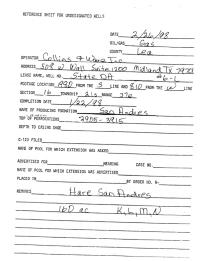 REFERENCE SHEET FOR UNDESIGNATED WELLS
DATE 2/26/98
OIL/GAS Gas
COUNTY Lea
OPERATOR Collins & Ware Inc
ADDRESS 508 W Wall Suite 1200 Midland Tx 79701
LEASE NAME, WELL NO. State DA #6-L
FOOTAGE LOCATION 1980 FROM THE S LINE AND 810 FROM THE W LINE
SECTION 16 TOWNSHIP 21s RANGE 37e
COMPLETION DATE 1/22/98
NAME OF PRODUCING FORMATION San Andres
TOP OF PERFORATIONS 3905-3915
DEPTH TO CASING SHOE
C-123 FILED
NAME OF POOL FOR WHICH EXTENSION WAS ASKED
ADVERTISED FOR HEARING CASE NO.
NAME OF POOL FOR WHICH EXTENSION WAS ADVERTISED
PLACED IN BY ORDER NO. R-
REMARKS Hare San Andres
160 ac K, L, M, N